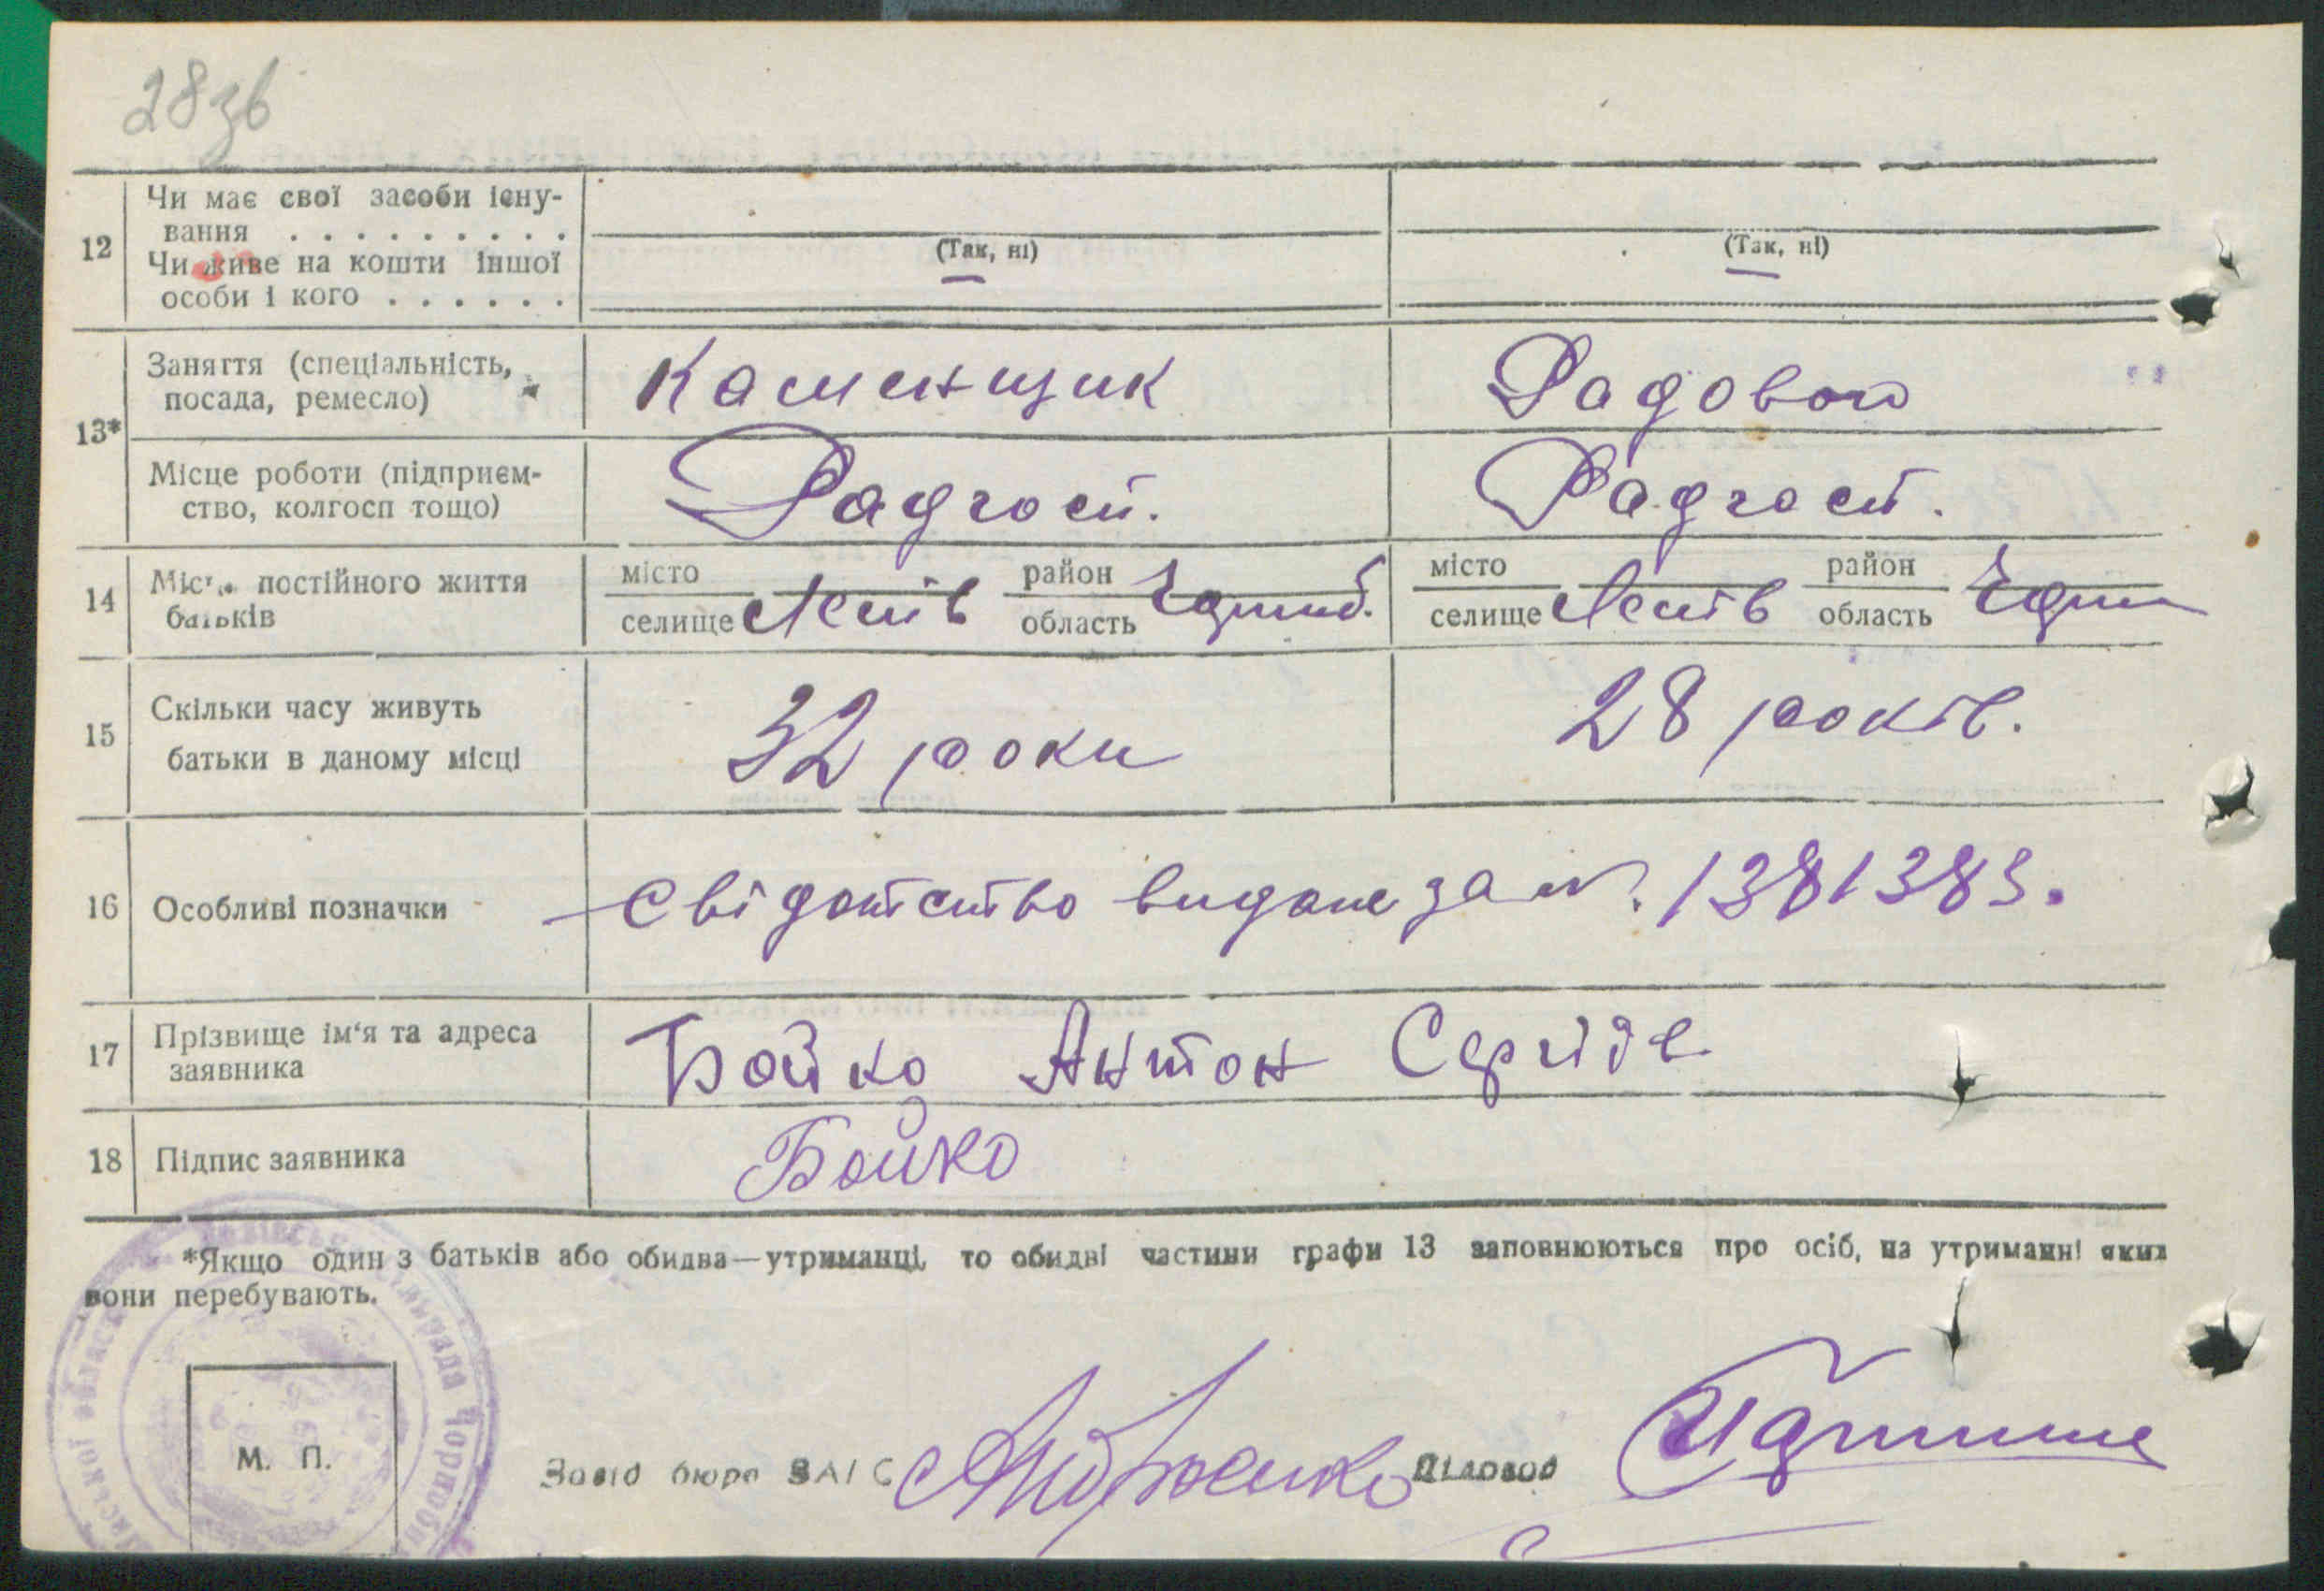 28зв
12 Чи має свої засоби існу-
вання . . . . . . . . .
Чи живе на кошти іншої
особи і кого . . . . . .
(Так, ні) (Так, ні)
13* Заняття (спеціальність,
посада, ремесло) Каменщик Радового
Місце роботи (підприєм-
ство, колгосп тощо) Радгосп. Радгосп.
14 Місце постійного життя
батьків
місто район місто район
селище область селище область
15 Скільки часу живуть
батьки в даному місці 32 роки 28 років.
16 Особливі позначки Свідотство видане за №. 1381383.
17 Прізвище ім'я та адреса
заявника Бойко Антон Сергіїв
18 Підпис заявника Бойко
*Якщо один з батьків або обидва—утриманці, то обидві частини графи 13 заповнюються про осіб, на утриманні яких
вони перебувають.
М. П.
Завід бюро ЗАГС Діловод